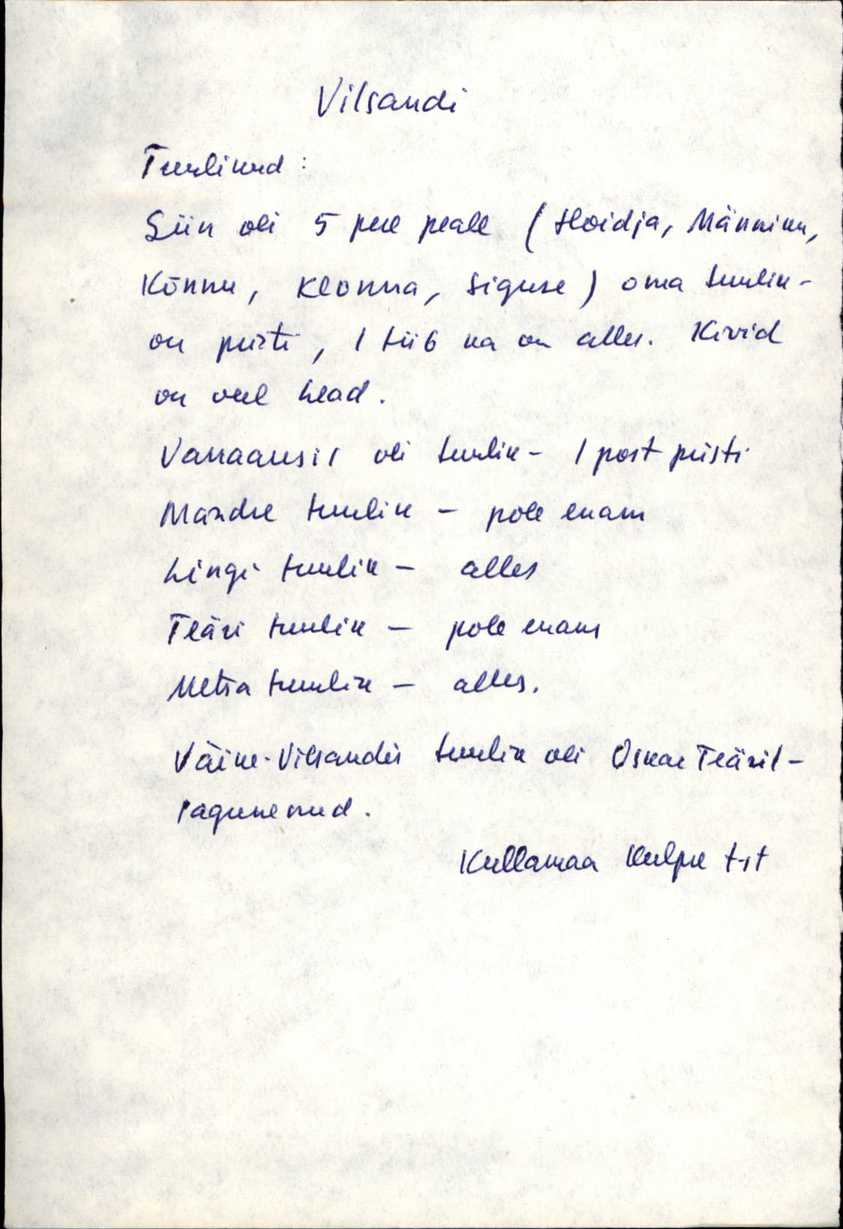 Vilsandi
Tuulikud:
Siin oli 5 pere peale (Hoidja, Männiku,
Kõnnu, Kloonna, Siguse) oma tuulik-
on püsti, 1 tiib ka on alles. Kivid
on veel head.
Vanaansil oli tuulik - 1 post püsti
Mändre tuulik - pole enam
Lingi tuulik - alles
Teäri tuulik - pole enam
Metsa tuulik - alles.
Väike-Vilsandis tuulik oli Oskar Teäril-
lagunenud.
Kullamaa Kulpe t-lt